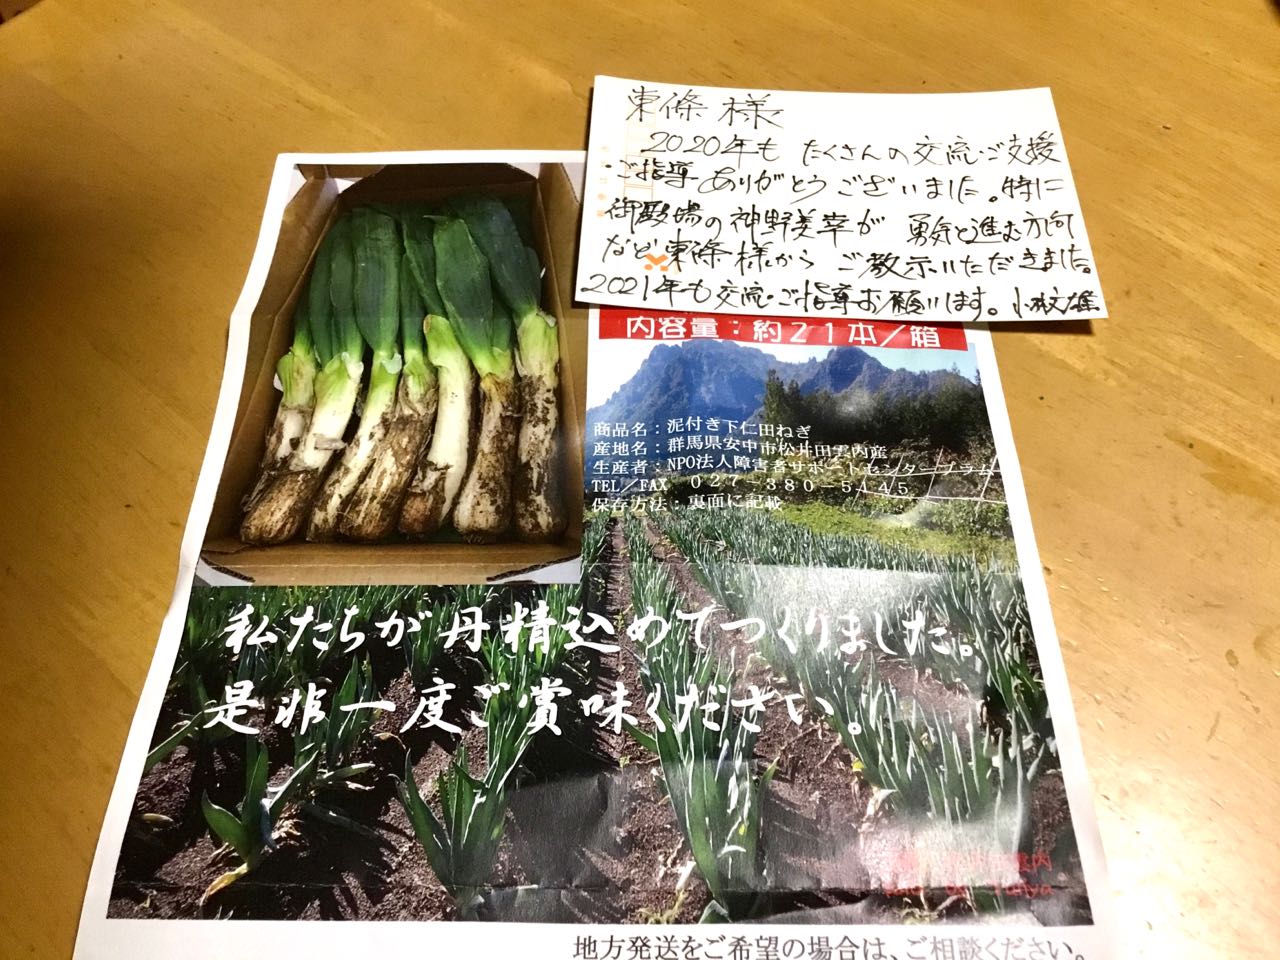 東條様
2020年も たくさんの交流・ご支援
・ご指導ありがとうございました。特に
御殿場の神野美幸が 勇気と進む方向
など東條様から ご教示いただきました。
2021年も交流・ご指導お願いします。小林文雄
内容量：約21本／箱
商品名：泥付き下仁田ねぎ
産地名：群馬県安中市松井田雲内産
生産者：NPO法人障害者サポートセンター
TEL／FAX 027－380－5145
保存方法：裏面に記載
私たちが丹精込めてつくりました。
是非一度ご賞味ください。
地方発送をご希望の場合は、ご相談ください。